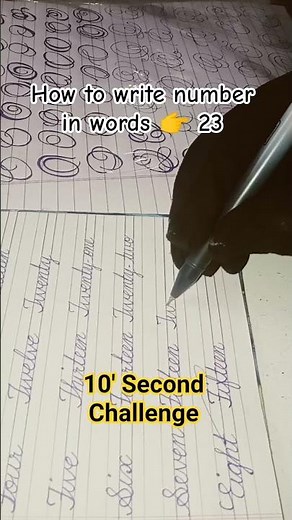 How to write number
in words 👉 23
10' Second
Challenge
Four Twelve Twenty
Five Thirteen Twenty-one
Six Twenty-two
Seven
Eight